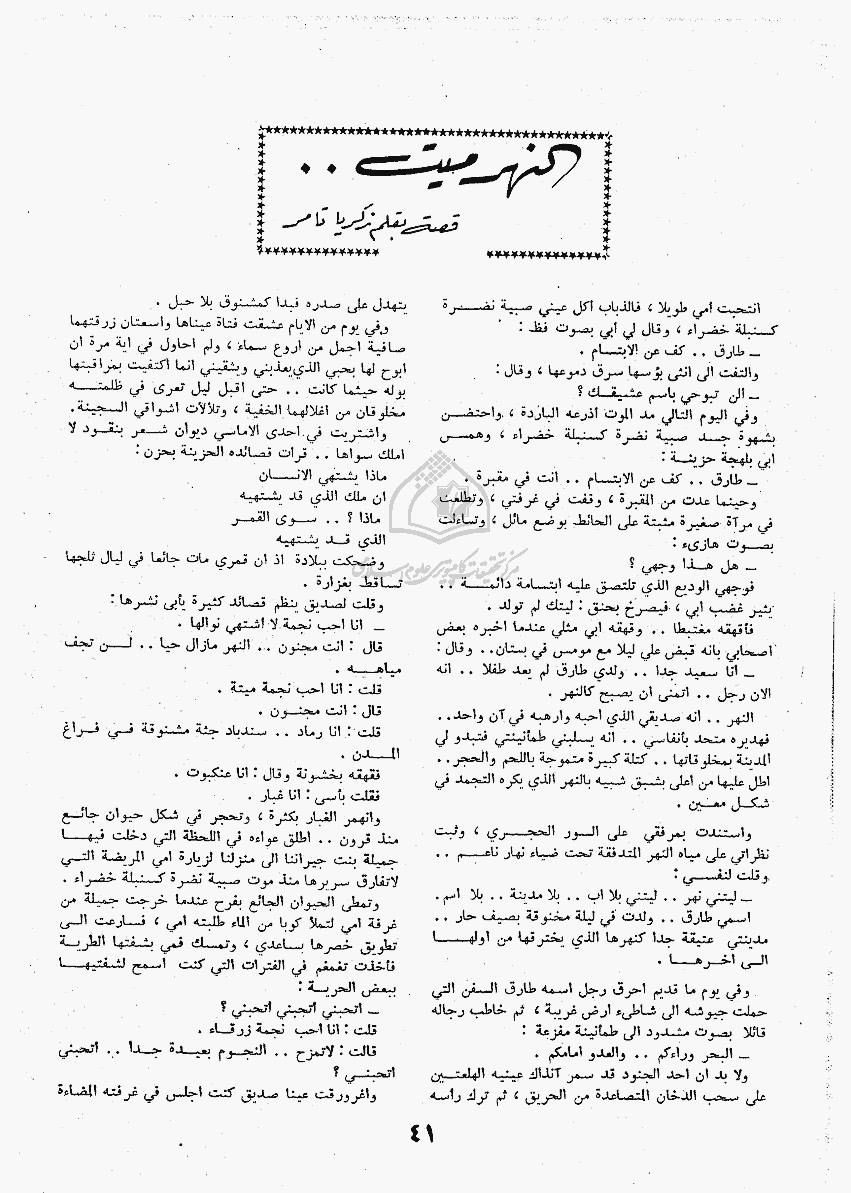 النهر ميت . .
قصة بقلم زكريا تامر
انتحبت امي طويلا ، فالذباب اكل عيني صبية نضـــرة
كـسنبلة خضراء ، وقال لي أبي بصوت فظ :
ـ طارق . . كف عن الابتسام .
والتفت الى انثى بؤسها سرق دموعها ، وقال:
ـ الن تبوحي باسم عشيقـك ؟
وفي اليوم التالي مد الموت اذرعه الباردة ، واحتضــن
بشهوة جسد صبية نضرة كسنبلة خضراء ، وهمــس
ابي بلهجة حزينـة :
ـ طارق . . كف عن الابتسام . . انت في مقبرة .
وحينما عدت من المقبرة ، وقفت في غرفتي ، وتطلعت
في مرآة صغيرة مثبتة على الحائط بوضع مائل ، وتساءلت
بصـوت هازىء :
ـ هل هـذا وجهي ؟
فوجهي الوديع الذي تلتصق عليه ابتسامة دائمـــة . .
يثير غضب ابي ، فيصرخ بحنق : ليتك لم تولد .
فأقهقه مغتبطا . . وقهقه ابي مثلي عندما اخبره بعض
اصحابي بانه قبض علي ليلا مع مومس في بستان.. وقال:
ـ أنا سعيد جدا . . ولدي طارق لم يعد طفلا . . انه
الان رجل . . اتمنى ان يصبح كالنهر .
النهر . . انه صديقي الذي احبه وارهبه في آن واحد..
فهديره متحد بأنفاسي . . انه يسلبني طمأنينتي فتبدو لي
المدينة بمخلوقاتها . . كتلة كبيرة متموجة باللحم والحجر..
اطل عليها من أعلى بشبق شبيه بالنهر الذي يكره التجمد في
شكـل معـين .
واستندت بمرفقي على السور الحجـري ، وثبت
نظراتي على مياه النهر المتدفقة تحت ضياء نهار ناعـم . .
وقلت لنفسـي :
ـ ليتني نهر . . ليتني بلا اب . . بلا مدينة . . بلا اسم.
اسمي طارق . . ولدت في ليلة مخنوقة بصيف حار . .
مدينتي عتيقة جدا كنهرها الذي يخترقها من اولهــا
الـى اخرهــا .
وفي يوم ما قديم احرق رجل اسمه طارق السفن التي
حملت جيوشه الى شاطىء ارض غريبة ، ثم خاطب رجاله
قائلا بصوت مشدود الى طمأنينة مفزعة :
ـ البحر وراءكم . . والعدو امامكم .
ولا بد ان احد الجنود قد سمر آنذاك عينيه الهلعتـين
على سحب الدخان المتصاعدة من الحريق ، ثم ترك رأسه
يتهدل على صدره فبدا كمشنوق بلا حبل .
وفي يوم من الايام عشقت فتاة عيناها واسعتان زرقتهما
صافية اجمل من اروع سماء ، ولم احاول في اية مرة ان
ابوح لها بحبي الذي يعذبني ويشقيني انما اكتفيت بمراقبتها
بوله حيثما كانت . . حتى اقبل ليل تعرى في ظلمتــه
مخلوقان من اغلالهما الخفية ، وتلألأت اشواقي السجينة.
واشتريت في احدى الاماسي ديوان شـعر بنقـود لا
املك سواها . . قرات قصائده الحزينة بحزن :
ماذا يشتهي الانســان
ان ملك الذي قد يشتهيه
ماذا ؟ . . سـوى القمـر
الذي قـد يشتهيه
وضحكت ببلادة اذ ان قمري مات جائعا في ليال ثلجها
تساقط بغزارة .
وقلت لصديق ينظم قصائد كثيرة يأبى نشرها :
ـ انا احب نجمة لا اشتهي نوالها .
قال : انت مجنون . . النهر مازال حيا . . لــن تجف
مياهــه .
قلت : انا احب نجمة ميتة .
قال : انت مجنـون .
قلت : انا رماد . . سندباد جثة مشنوقة فـي فـراغ
المــدن .
فقهقه بخشونة وقال : انا عنكبوت .
فقلت بأسى : انا غبار .
وانهمر الغبار بكثرة ، وتحجر في شكل حيوان جائـع
منذ قرون . . اطلق عواءه في اللحظة التي دخلت فيهـا
جميلة بنت جيراننا الى منزلنا لزيارة امي المريضة التـي
لاتفارق سريرها منذ موت صبية نضرة كسنبلة خضراء .
وتمطى الحيوان الجائع بفرح عندما خرجت جميلة من
غرفة امي لتملأ كوبا من الماء طلبته امي ، فسارعت الـى
تطويق خصرها بساعدي ، وتمسك فمي بشفتها الطرية
فأخذت تغمغم في الفترات التي كنت اسمح لشفتيهــا
ببعض الحريـة :
ـ اتحبني اتحبني اتحبني ؟
قلت : انا احب نجمة زرقـاء .
قالت : لاتمزح . . النجـوم بعيـدة جـدا . . اتحبني
اتحبنـي ؟
واغرورقت عينا صديق كنت اجلس في غرفته المضاءة
٤١